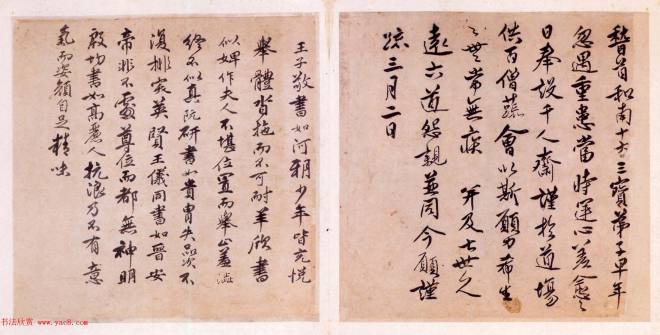 稽首和南十方三寶弟子早年
忽遇重患當時運心差愈之
日奉設千人齋謹於道場
供百僧蔬會以斯願力希生
々世々常無疾 并及七世久
遠六道怨親並同今願謹
疏三月二日
王子敬書如河朔少年皆充悅
舉體沓拖而不可耐羊欣書
似婢作夫人不堪位置而舉止羞澁
終不似真阮研書如貴冑失品次不
復排突英賢王儀同書如晉安
帝非不處尊位而都無神明
殷均書如高麗人抗浪乃不有意
氣而姿顏自足精味
书法欣赏 www.yac8.com